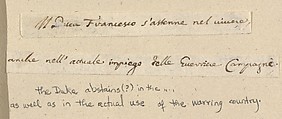 Il Duca Francesco s'astenne nel vivere,
anche nell'attuale impiego delle Guerriere Campagne.
the Duke abstains(?) in the ....
as well as in the actual use of the warring country.